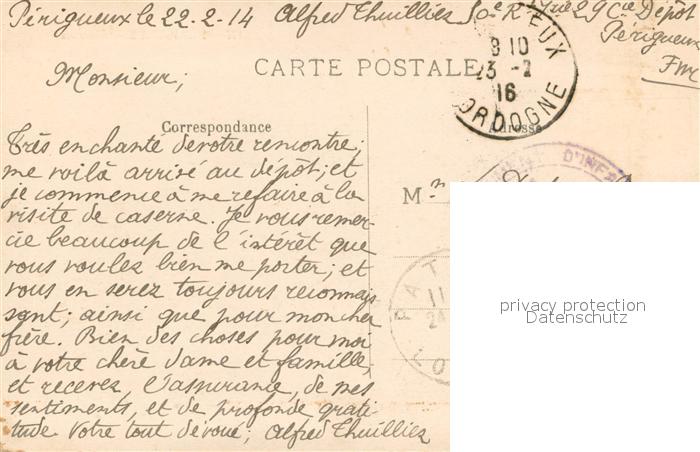 Périgueux le 22-2-14 Alfred Thuilliez 50e R 29 Cie Dépôt
Périgueux
Monsieur;
CARTE POSTALE
EUX
8 10
23 -2
16
DORDOGNE
Correspondance
Adresse
D'INFA
Très enchante de votre rencontre;
me voilà arrivé au dépôt; et
je commence à me refaire à la
visite de caserne. Je vous remer-
cie beaucoup de l'intérêt que
vous voulez bien me porter; et
vous en serez toujours reconnais
sant; ainsi que pour mon cher
frère. Bien des choses pour moi
à votre chère dame et famille,
et recevez l'assurance, de mes
sentiments, et de profonde grati-
tude votre tout dévoué; Alfred Thuilliez
M
PAT
11
24
LO
privacy protection
Datenschutz